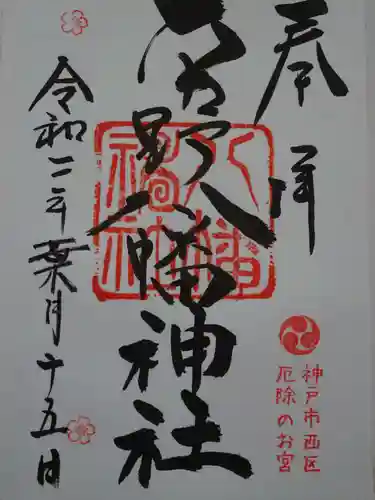 奉拝
野八幡神社
八幡
神社
神戸市西区
厄除のお宮
令和二年葉月十五日